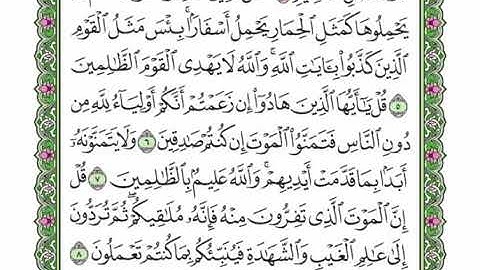 يَحْمِلُوهَا كَمَثَلِ الْحِمَارِ يَحْمِلُ أَسْفَارًا ۚ بِئْسَ مَثَلُ الْقَوْمِ
الَّذِينَ كَذَّبُوا۟ بِـَٔايَٰتِ اللَّهِ ۚ وَاللَّهُ لَا يَهْدِى الْقَوْمَ الظَّٰلِمِينَ
٥ قُلْ يَٰٓأَيُّهَا الَّذِينَ هَادُوٓا۟ إِن زَعَمْتُمْ أَنَّكُمْ أَوْلِيَآءُ لِلَّهِ مِن
دُونِ النَّاسِ فَتَمَنَّوُا۟ الْمَوْتَ إِن كُنتُمْ صَٰدِقِينَ ٦ وَلَا يَتَمَنَّوْنَهُۥٓ
أَبَدًۢا بِمَا قَدَّمَتْ أَيْدِيهِمْ ۚ وَاللَّهُ عَلِيمٌۢ بِالظَّٰلِمِينَ ٧ قُلْ
إِنَّ الْمَوْتَ الَّذِى تَفِرُّونَ مِنْهُ فَإِنَّهُۥ مُلَٰقِيكُمْ ۖ ثُمَّ تُرَدُّونَ
إِلَىٰ عَٰلِمِ الْغَيْبِ وَالشَّهَٰدَةِ فَيُنَبِّئُكُم بِمَا كُنتُمْ تَعْمَلُونَ ٨